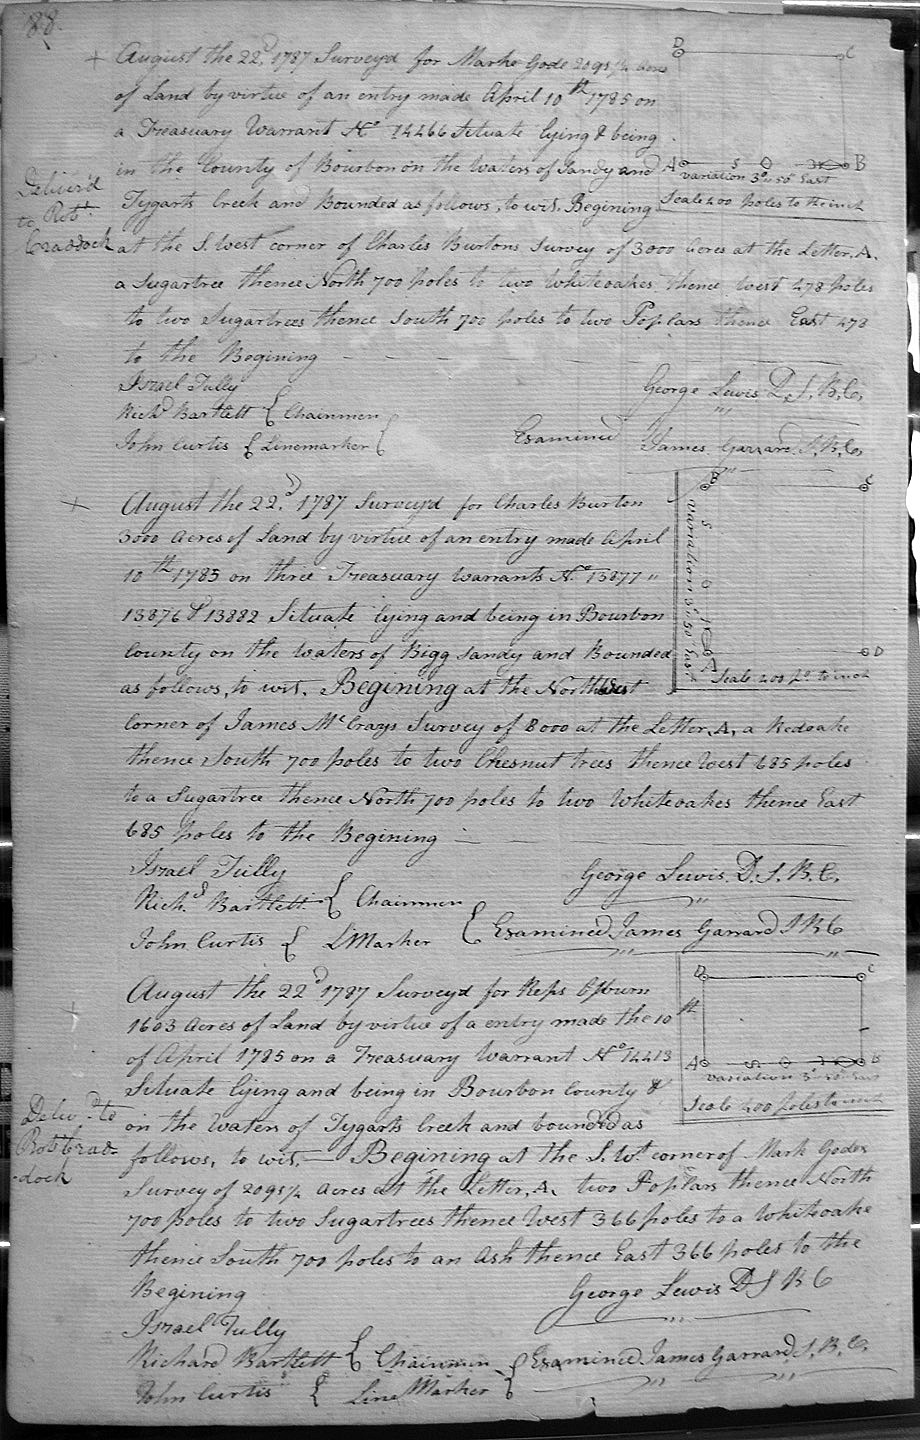 88.
+ August the 22d. 1787 Surveyd for Marke Gode 2091 1/4 Acres
of Land by virtue of an entry made April 10th 1785 on
a Treasuary Warrant No 14466 Situate lying & being
in the County of Bourbon on the Waters of Sandy and
Tygarts Creek and Bounded as follows, to wit. Begining
at the S. West corner of Charles Burtons Survey of 3000 Acres at the Letter, A.
a Sugartree thence North 700 poles to two Whiteoakes thence West 478 poles
to two Sugartrees thence South 700 poles to two Poplars thence East 478
to the Begining
Deliver'd
to Robt.
Craddock
D C
A S B
variation 3° 50' East
Scale 200 poles to the inch
Israel Tully
Richd Bartlett { Chainmen
John Curtis { Linemarker {
George Lewis D. S. B. Co,
Examined James Garrard S. B. Co,
+ August the 22d. 1787 Surveyd for Charles Burton
3000 Acres of Land by virtue of an entry made April
10th 1785 on three Treasuary Warrants No 13877 "
13876 & 13882 Situate lying and being in Bourbon
County on the Waters of Bigg Sandy and Bounded
as follows, to wit. Begining at the North West
Corner of James McCrays Survey of 8000 at the Letter, A, a Redoake
thence South 700 poles to two Chesnut trees thence West 685 poles
to a Sugartree thence North 700 poles to two Whiteoakes thence East
685 poles to the Begining
B C
variation 3° 50' East
S
A D
Scale 200 po. to inch
Israel Tully
Richd. Bartlett { Chainmen
John Curtis { L Marker
George Lewis. D. S. B. C.
{ Examined James Garrard S B C
August the 22d 1787 Surveyd for Reps Osburn
1603 Acres of Land by virtue of a entry made the 10th
of April 1785 on a Treasuary Warrant No 14413
Situate lying and being in Bourbon County &
on the Waters of Tygarts Creek and bounded as
follows, to wit, — Begining at the S. Wt. corner of Mark Godes
Survey of 2091 1/4 Acres at the Letter, A, two Poplars thence North
700 poles to two Sugartrees thence West 366 poles to a Whiteoake
thence South 700 poles to an Ash thence East 366 poles to the
Begining
Delivd. to
Robt Crad-
-dock
D C
A S B
variation 3° 50' East
Scale 200 poles to inch
George Lewis D S B C
Israel Tully
Richard Bartlett { Chainmen
John Curtis { Line Marker
{ Examined James Garrard, S. B. C.